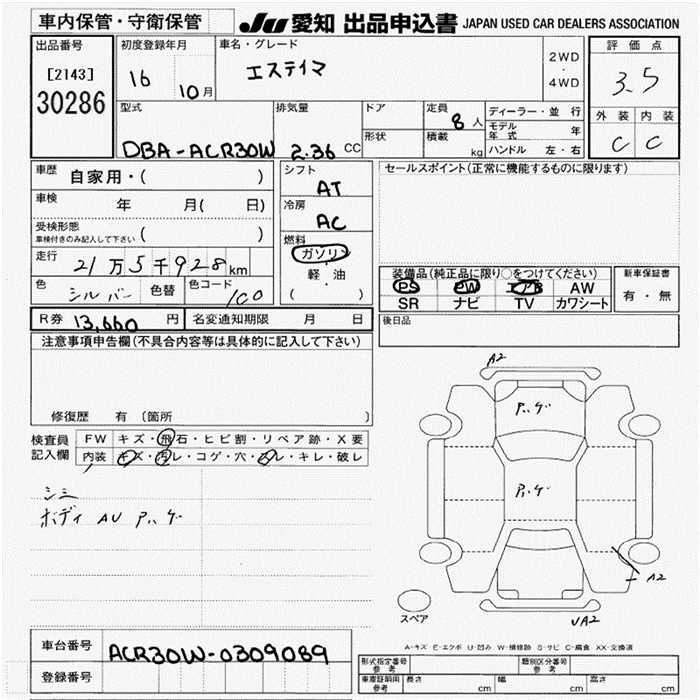 車内保管・守衛保管
JU 愛知 出品申込書 JAPAN USED CAR DEALERS ASSOCIATION
出品番号 初度登録年月 車名・グレード 2WD・4WD 評価点
[2143] 16 10月 エスティマ 3.5
30286
型式 排気量 ドア 定員 8人 ディーラー・並行 外装 内装
モデル年式 年
DBA-ACR30W 2.36 CC 形状 積載 kg ハンドル 左・右 C C
車歴 自家用・( ) シフト AT セールスポイント(正常に機能するものに限ります)
車検 年 月( 日) 冷房 AC
受検形態 車検付きのみ記入して下さい ( )
燃料 ガソリン
走行 21万5千928km 軽油
( )
装備品(純正品に限り○をつけてください) 新車保証書
PS PW エアB AW 有・無
SR ナビ TV カワシート
色 シルバー 色替 色コード 1C0
R券 13,660 円 名変通知期限 月 日 後日品
注意事項申告欄(不具合内容等は具体的に記入して下さい)
修復歴 有 (箇所 )
検査員記入欄 FW キズ・飛石・ヒビ割・リペア跡・X要
内装 キズ・汚レ・コゲ・穴・スレ・キレ・破レ
シミ
ボディ AU アバゲ
A2
アバゲ
アバゲ
A2
スペア
UA2
A-キズ E-エクボ U-凹み W-補修跡 S-サビ C-腐食 XX-交換済
車台番号 ACR30W-0309089
登録番号
形式指定番号 参考 類別区分番号 参考
車庫証明用 参考 長さ cm 幅 cm 高さ cm